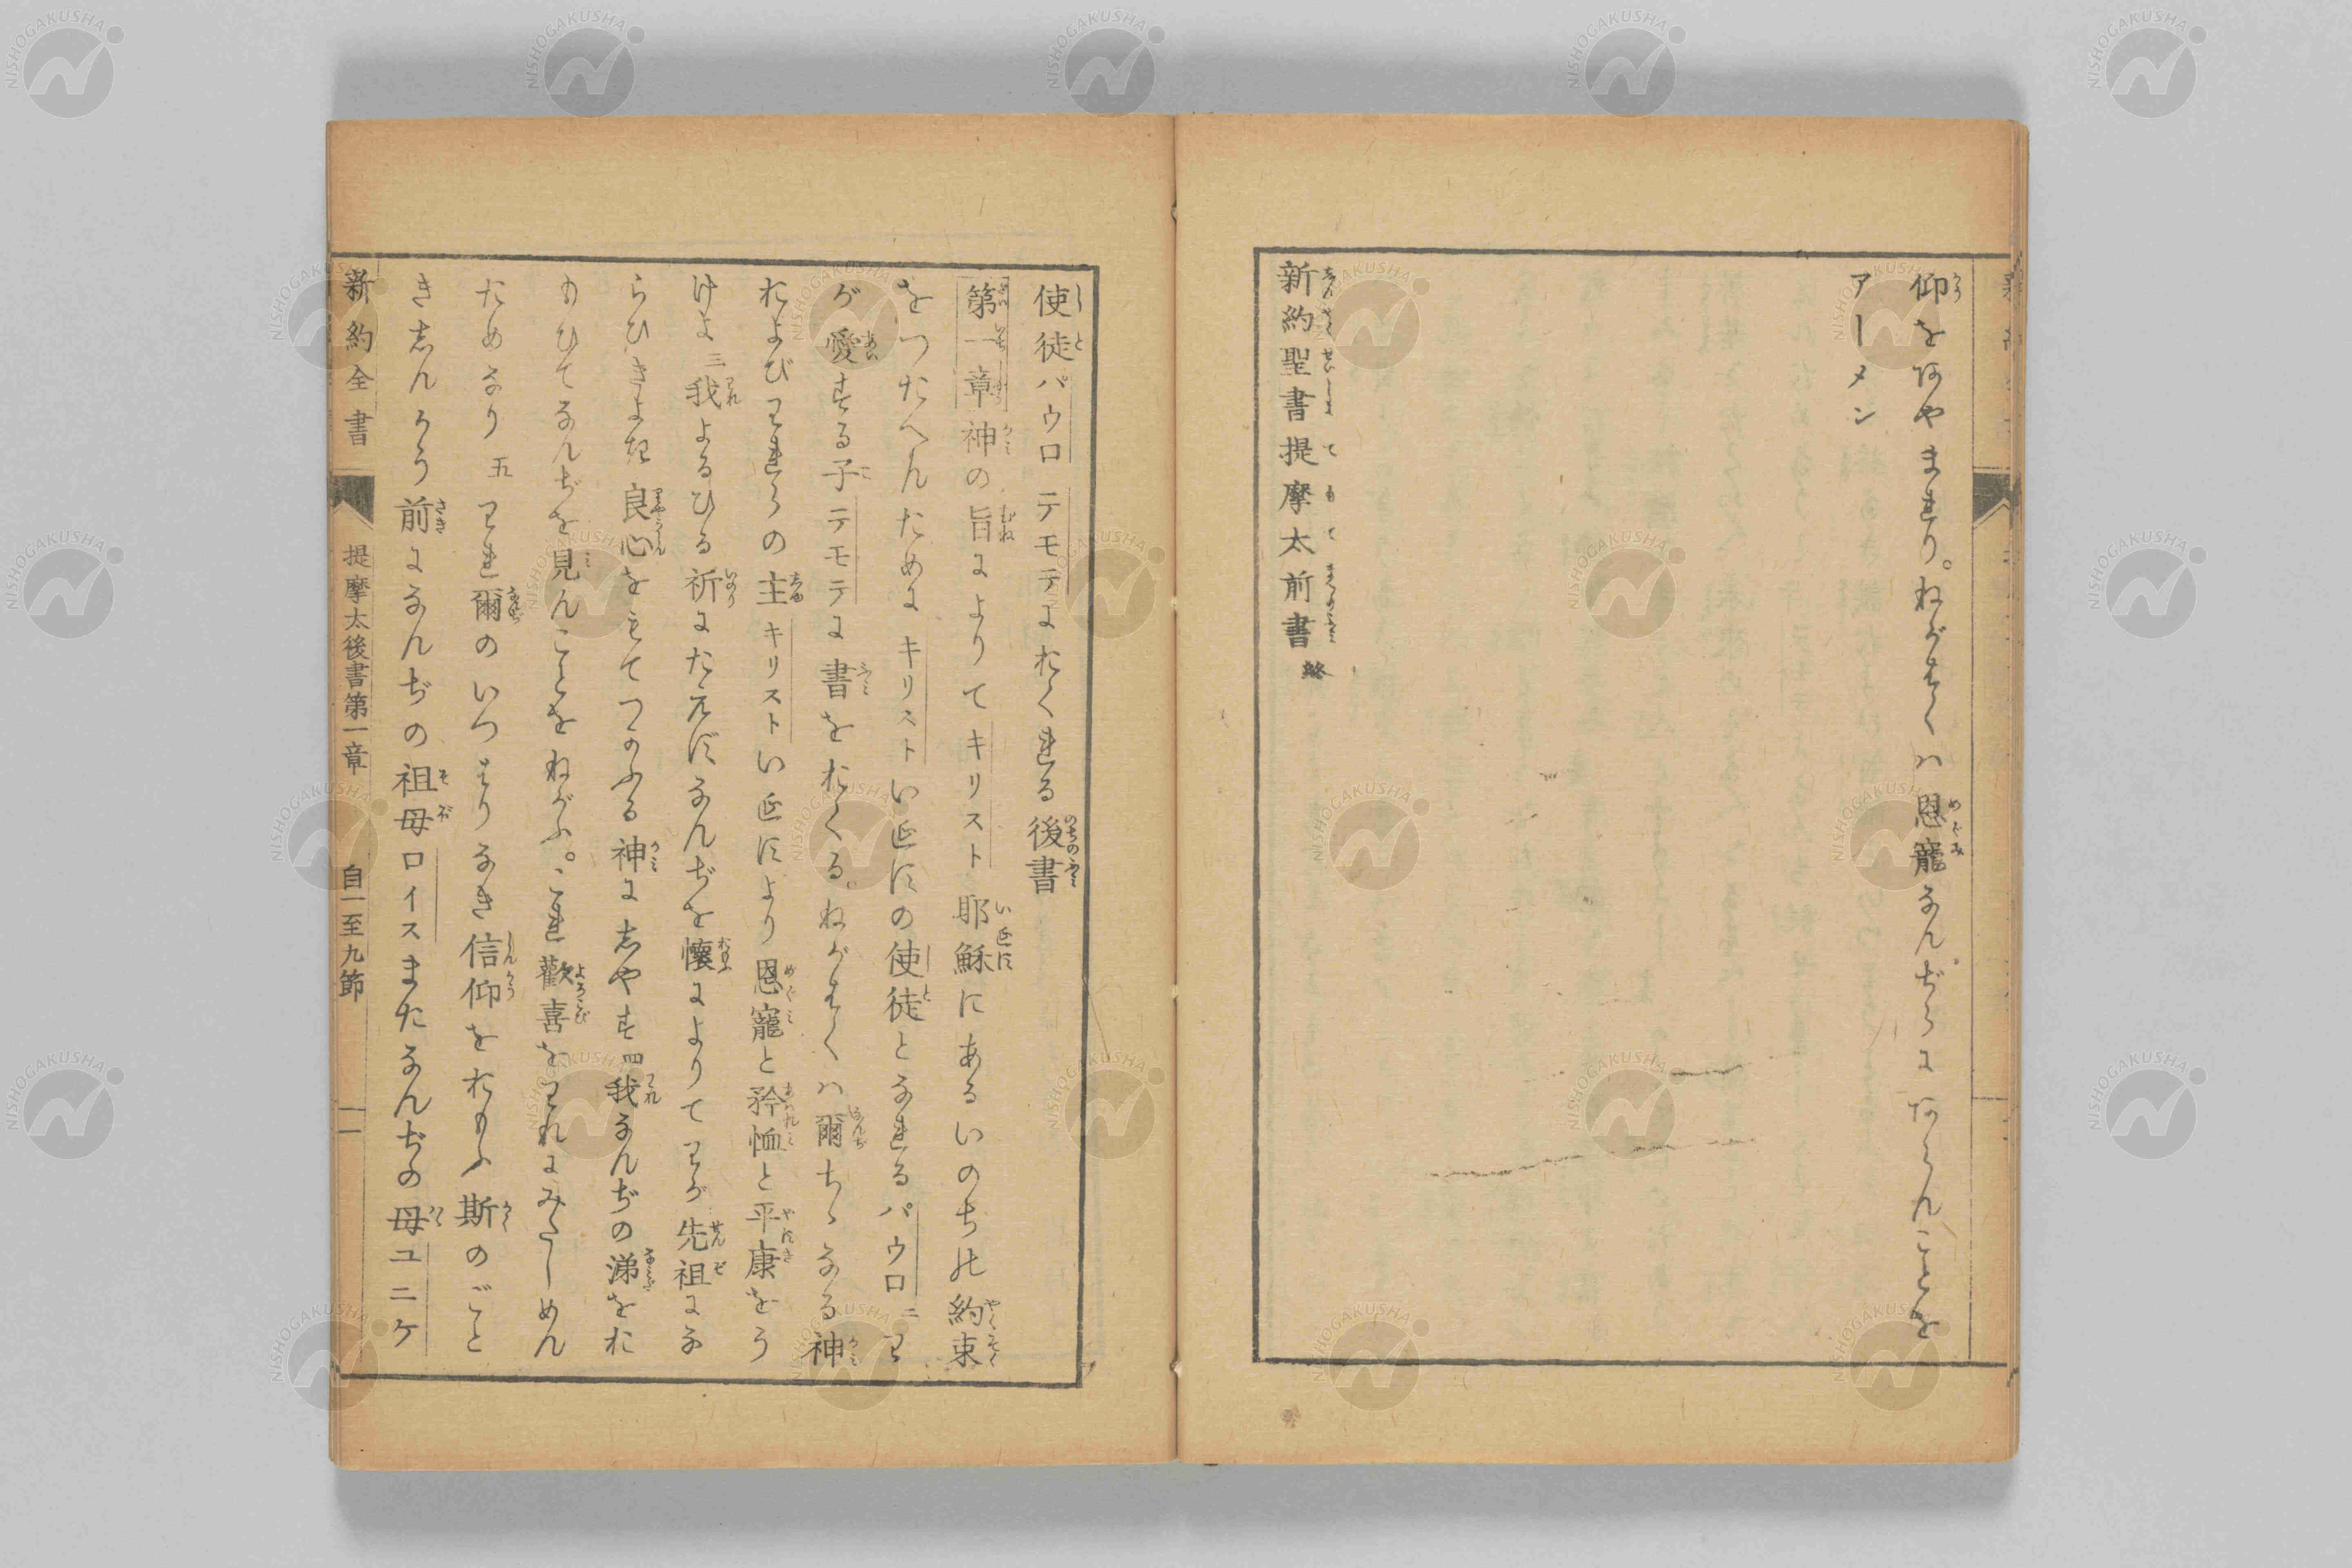 仰をあやまれり。ねがはくハ恩寵なんぢらにあらんことを
アーメン
新約聖書提摩太前書終
使徒パウロテモテにおくれる後書
第一章神の旨によりてキリスト耶穌にあるいのちの約束
をつたへんためにキリストいエスの使徒となれるパウロ二わ
が愛する子テモテに書をおくる。ねがはくハ爾ちゝなる神
およびわれらの主キリストいエスより恩寵と矜恤と平康をう
けよ三我よるひる祈にたえずなんぢを懐によりてわが先祖にな
らひきよき良心をもてつかふる神に志やす四我なんぢの涕をお
もひてなんぢを見んことをねがふ。これ歡喜をわれにみたしめん
ためなり五われ爾のいつはりなき信仰をおもふ斯のごと
き志んかう前になんぢの祖母ロイスまたなんぢの母ユニケ
新約全書 提摩太後書第一章 自一至九節 一
NISHOGAKUSHA